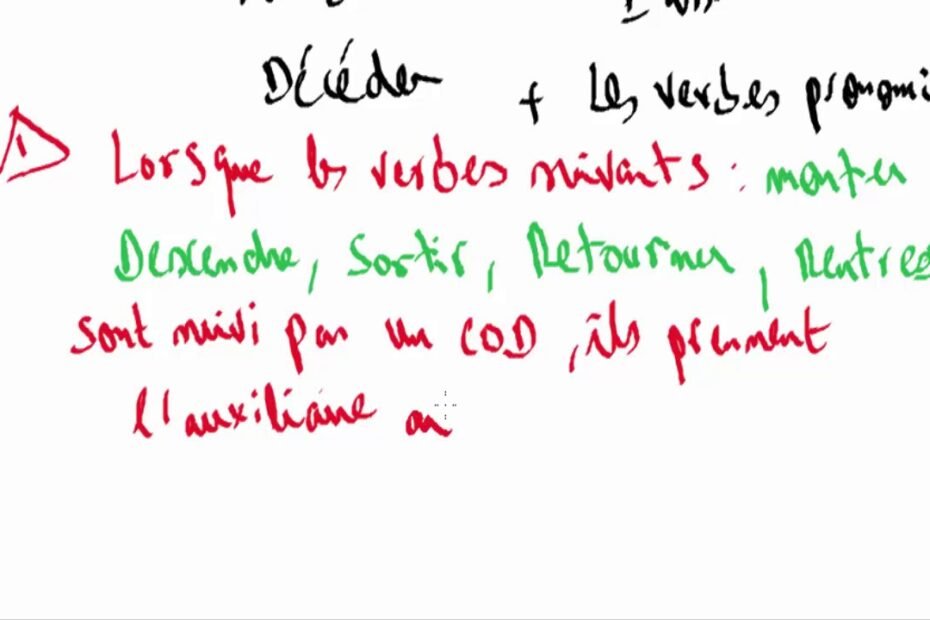 Décéder + Les verbes pronomi
Lorsque les verbes suivants : monter
Descendre, Sortir, Retourner, Rentrer
sont suivi par un COD, ils prennent
l'auxiliaire